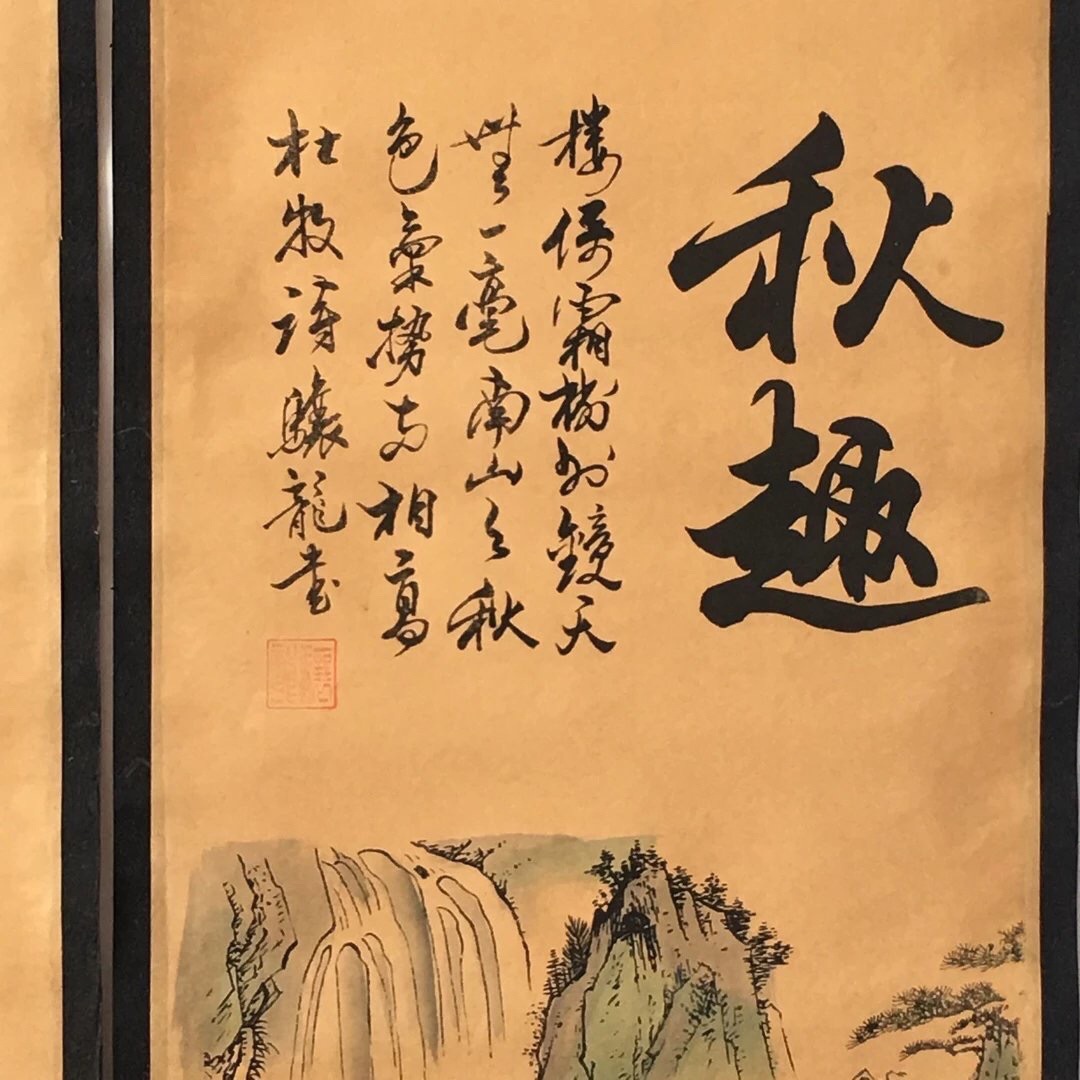 秋趣
樓倚霜樹外鏡天
無一毫南山與秋
色氣勢兩相高
杜牧詩驤龍書